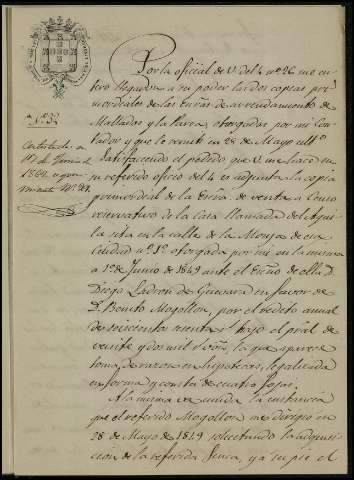 Por la oficial de V. del 4 nº 26 me en
tero llegaron a su poder las dos copias pri
mordeales de las Escras. de arrendamiento de
Mallados y la Parra, otorgadas por mi Con
tador y que le remiti en 28 de Mayo ultº
Satisfaciendo el pedido que V. me hace en
su referido oficio del 4 es adjunta la copia
primordial de la Escra. de venta a Censo
reservativo de la Casa llamada del Aguila
sita en la calle de la Monja de esa
Ciudad nº 1º otorgada por mi en la misma
a 1º de Junio de 1849 ante el Escno de ella D.
Diego Ladron de Guevara en favor de
D. Benito Mogollon, por el redito anual
de seiscientos sesenta bajo el pral de
veinte y dos mil r. von, la que aparece
tomada razon en hipotecas, legalizada
en forma y consta de cuatro fojas.
A la misma va unida la instancia
que el referido Mogollon me dirigio en
28 de Mayo de 1849 solicitando la adquisi
cion de la referida finca, ya su pie el
nº 32
Contestada en
1862